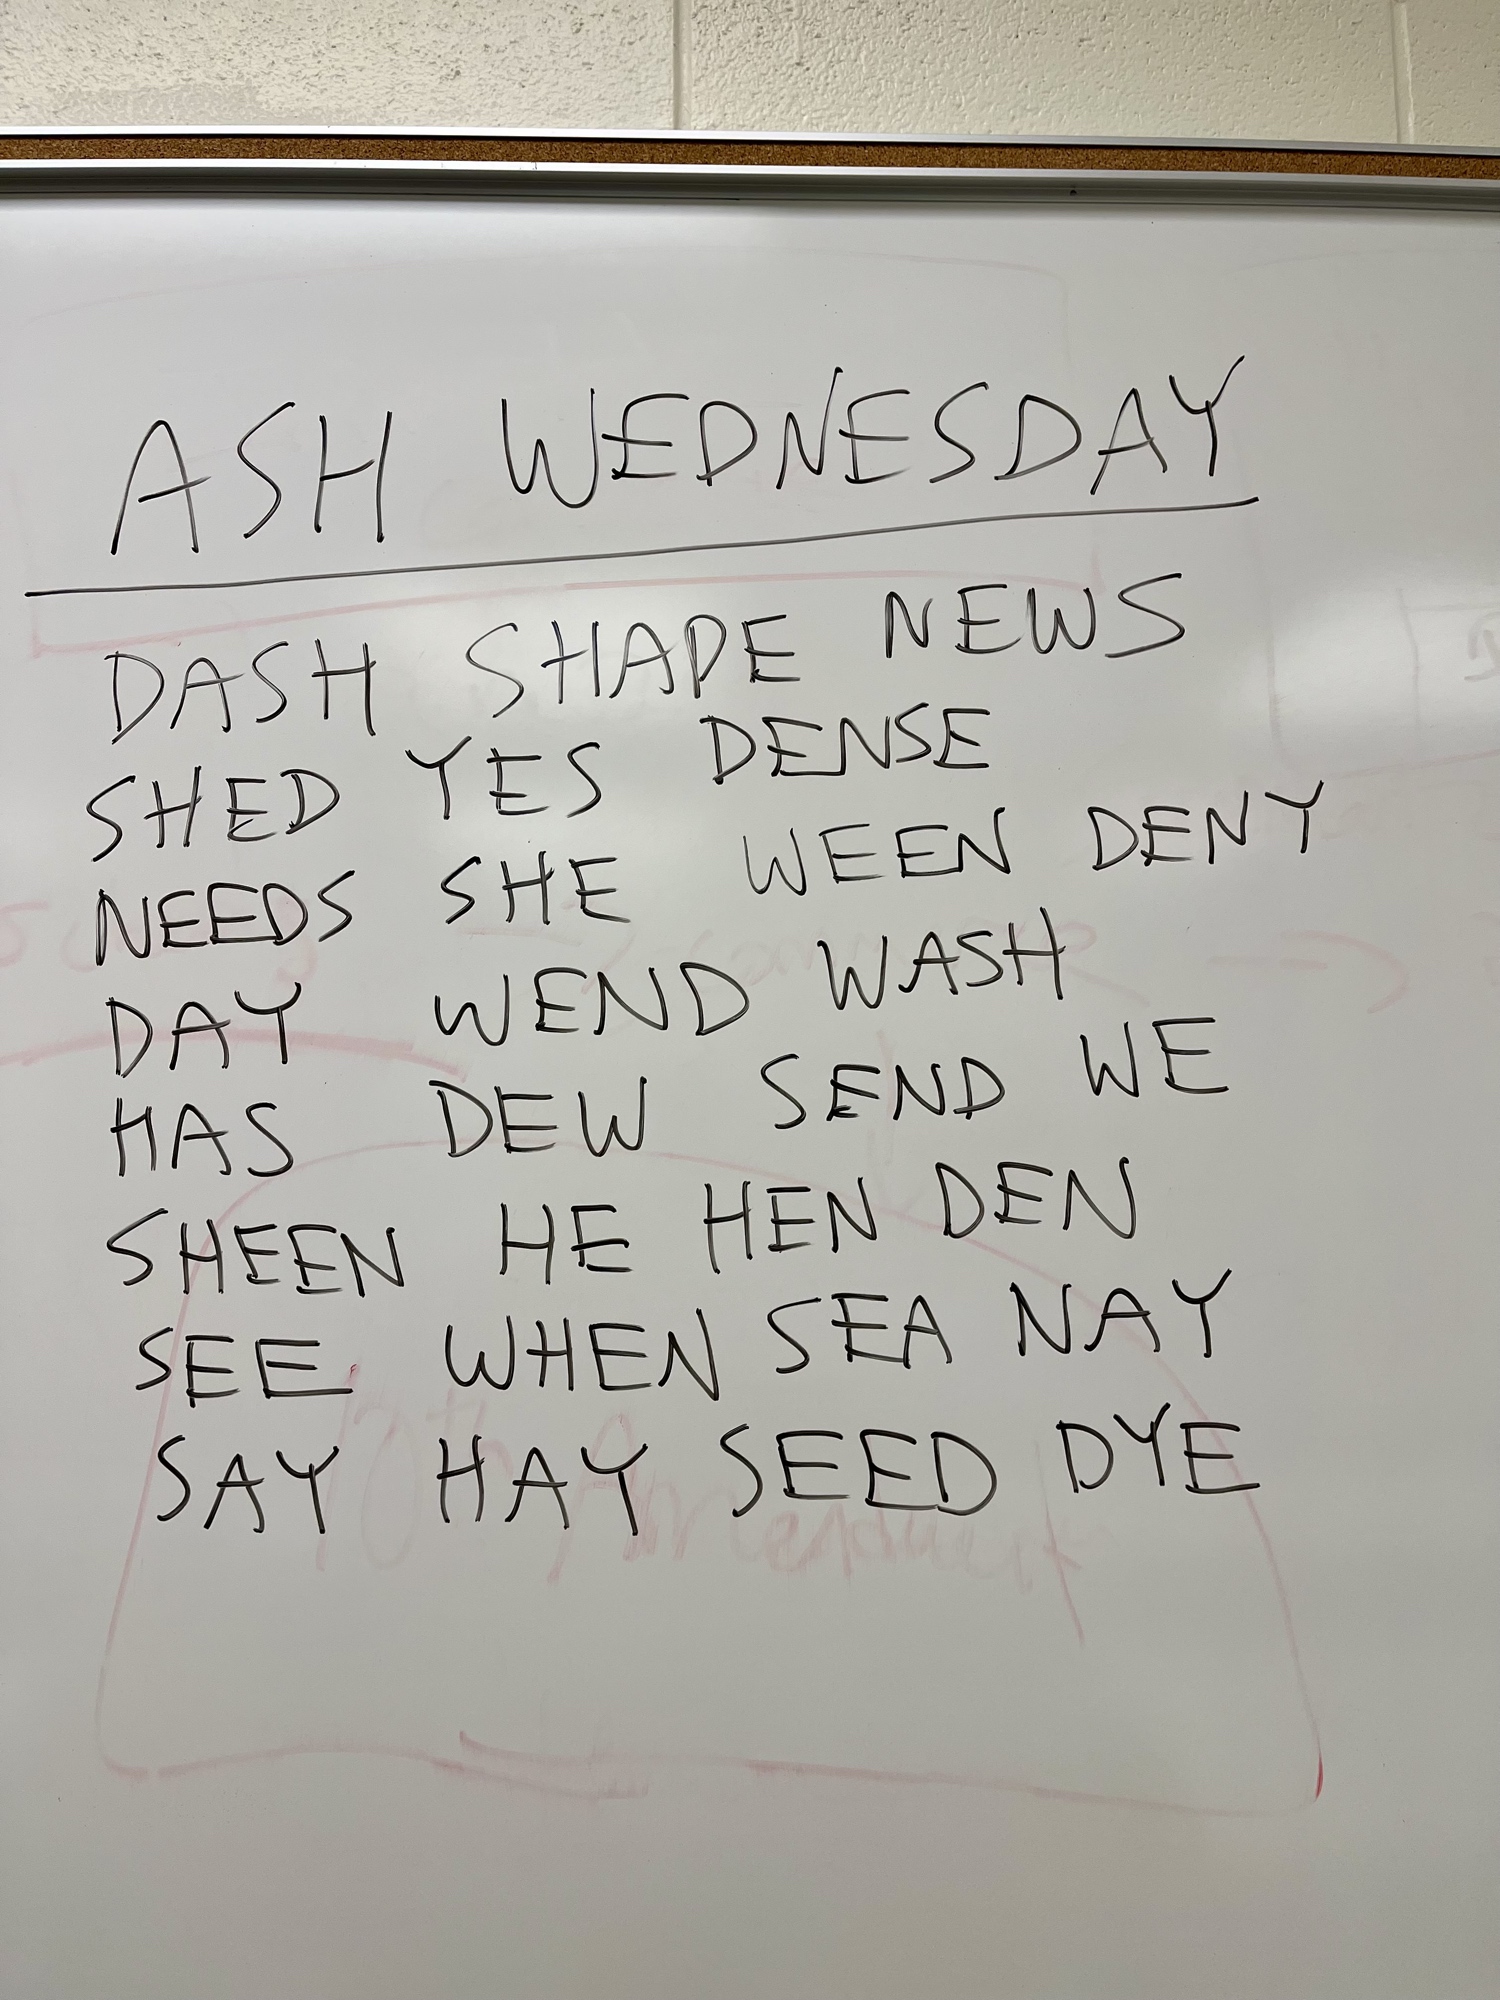 ASH WEDNESDAY
DASH SHAPE NEWS
SHED YES DENSE
NEEDS SHE WEEN DENY
DAY WEND WASH
HAS DEW SEND WE
SHEEN HE HEN DEN
SEE WHEN SEA NAY
SAY HAY SEED DYE
10th Amendment